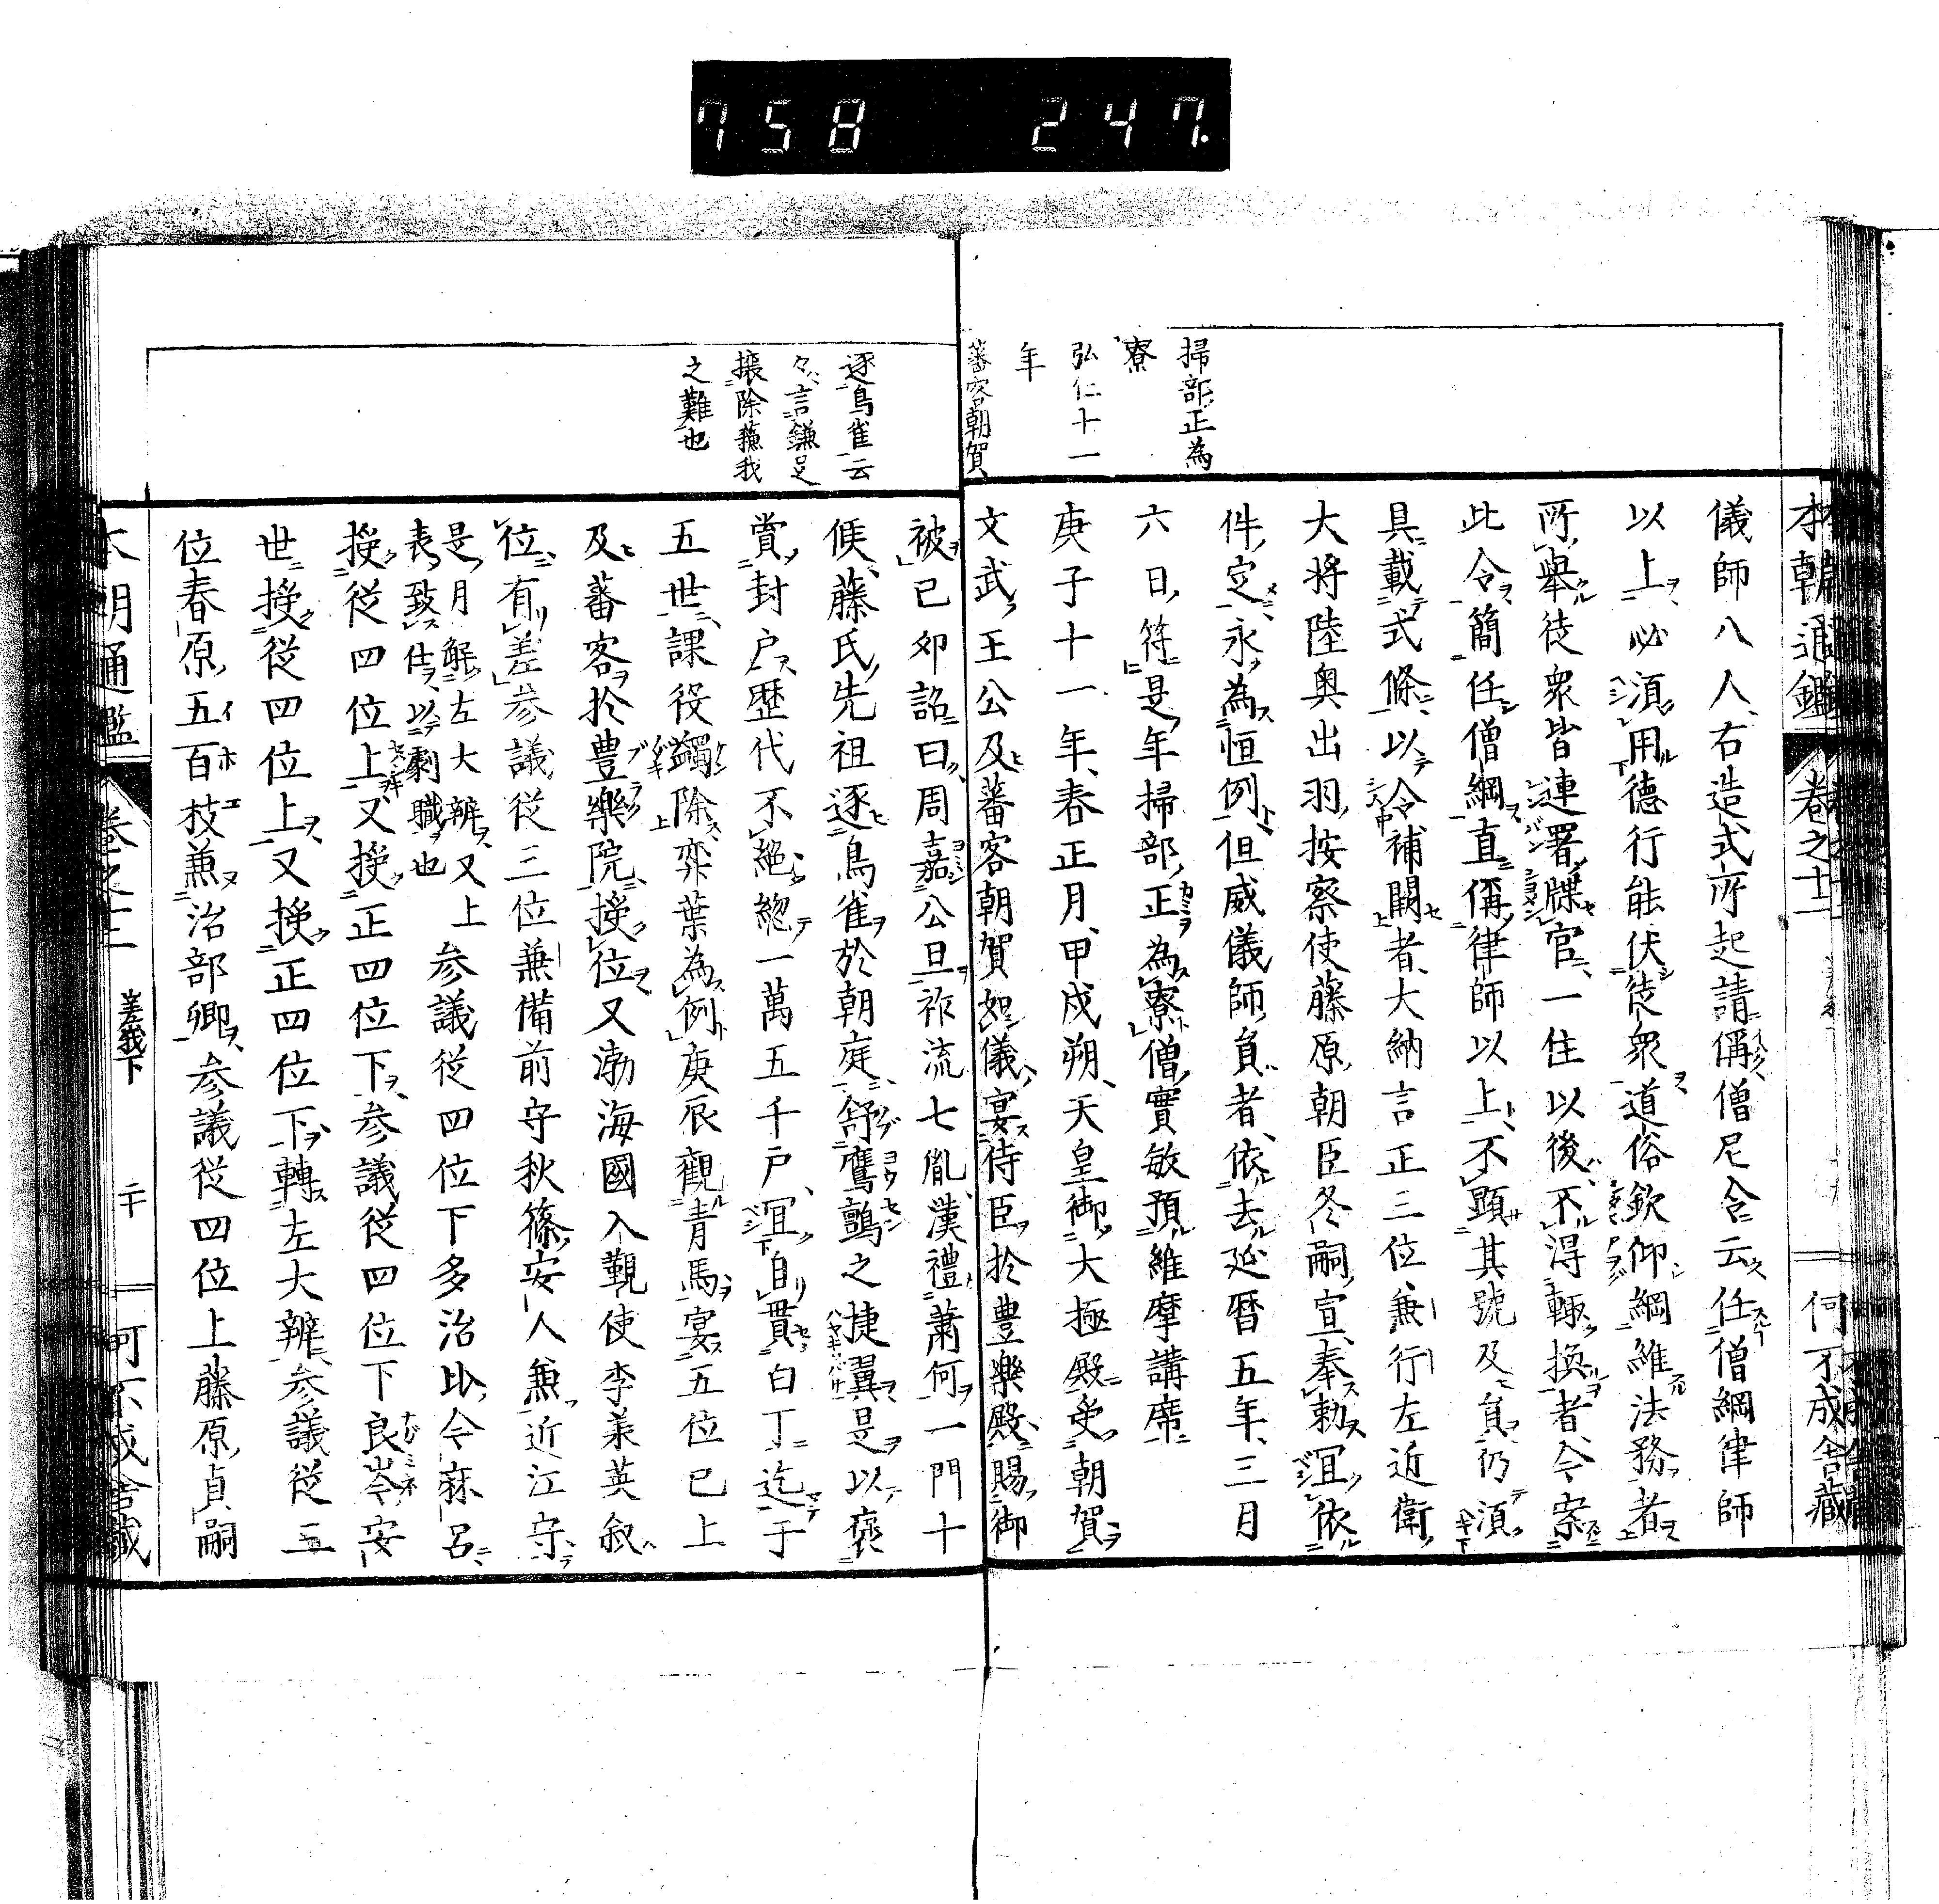 758 247.
本朝通鑑 卷之十二 何不成舎藏
掃部正為
寮
弘仁十一
年
蕃客朝賀
儀師八人右造式所起請偁僧尼令云任僧綱律師
以上必須用德行能伏徒衆道俗欽仰綱維法務者
所舉徒衆皆連署牒官一任以後不得輙換者令案
此令簡任僧綱直偁律師以上不顯其號及負仍須
具載式條以令補闕者大納言正三位兼行左近衛
大将陸奥出羽按察使藤原朝臣冬嗣宣奉勅宜依
件定永為恒例但威儀師負者依去延暦五年三月
六日符是年掃部正為寮僧實敏預維摩講席
庚子十一年春正月甲戌朔天皇御大極殿受朝賀
文武王公及蕃客朝賀如儀宴侍臣於豊樂殿賜御
逐鳥雀云
々言鎌足
攘除蘓我
之難也
被已卯詔曰周嘉公旦祚流七胤漢禮蕭何一門十
候藤氏先祖逐鳥雀於朝庭舒鷹鸇之捷翼是以褒
賞封户歴代不絶緫一萬五千戸宜自貫白丁迄于
五世課役蠲除奕葉為例庚辰觀青馬宴五位已上
及蕃客於豊樂院授位又渤海國入覲使李羕英叙
位有差参議従三位兼備前守秋篠安人兼近江守
是月觧左大辨又上
表致仕以劇職也
参議従四位下多治比今麻呂
授従四位上又授正四位下参議従四位下良岑安
世授従四位上又授正四位下轉左大辨参議従三
位春原五百枝兼治部卿参議従四位上藤原貞嗣
本朝通鑑 卷之十二 嵯峩下 二十 何不成舎藏